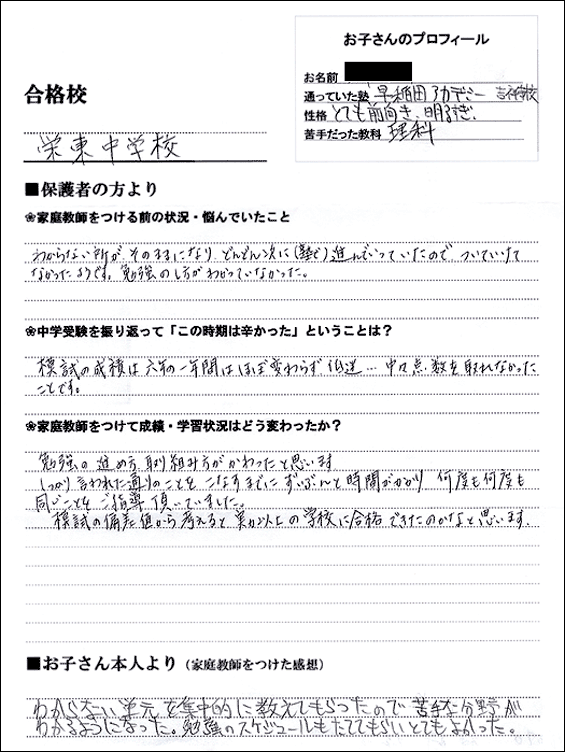 お子さんのプロフィール
お名前
通っていた塾 早稲田アカデミー 吉祥寺校
性格 とても前向き、明るすぎ。
苦手だった教科 理科
合格校
栄東中学校
■保護者の方より
❀家庭教師をつける前の状況・悩んでいたこと
わからない所が そのままになり どんどん次に(塾で)進んでいっていたので ついていけて
なかったようです。勉強のし方がわかっていなかった。
❀中学受験を振り返って「この時期は辛かった」ということは？
模試の成績は六年の一年間はほぼ変わらず 低迷… 中々点数を取れなかった
ことです。
❀家庭教師をつけて成績・学習状況はどう変わったか？
勉強の進め方、取り組み方がかわったと思います
しっかり言われた通りのことを こなすまでに ずいぶんと時間がかかり 何度も何度も
同じことをご指導頂いていました。
模試の偏差値から考えると 実力以上の学校に合格できたのかなと思います。
■お子さん本人より（家庭教師をつけた感想）
わからない単元を集中的に教えてもらったので苦手な分野が
わかるようになった。勉強のスケジュールもたててもらいとてもよかった。